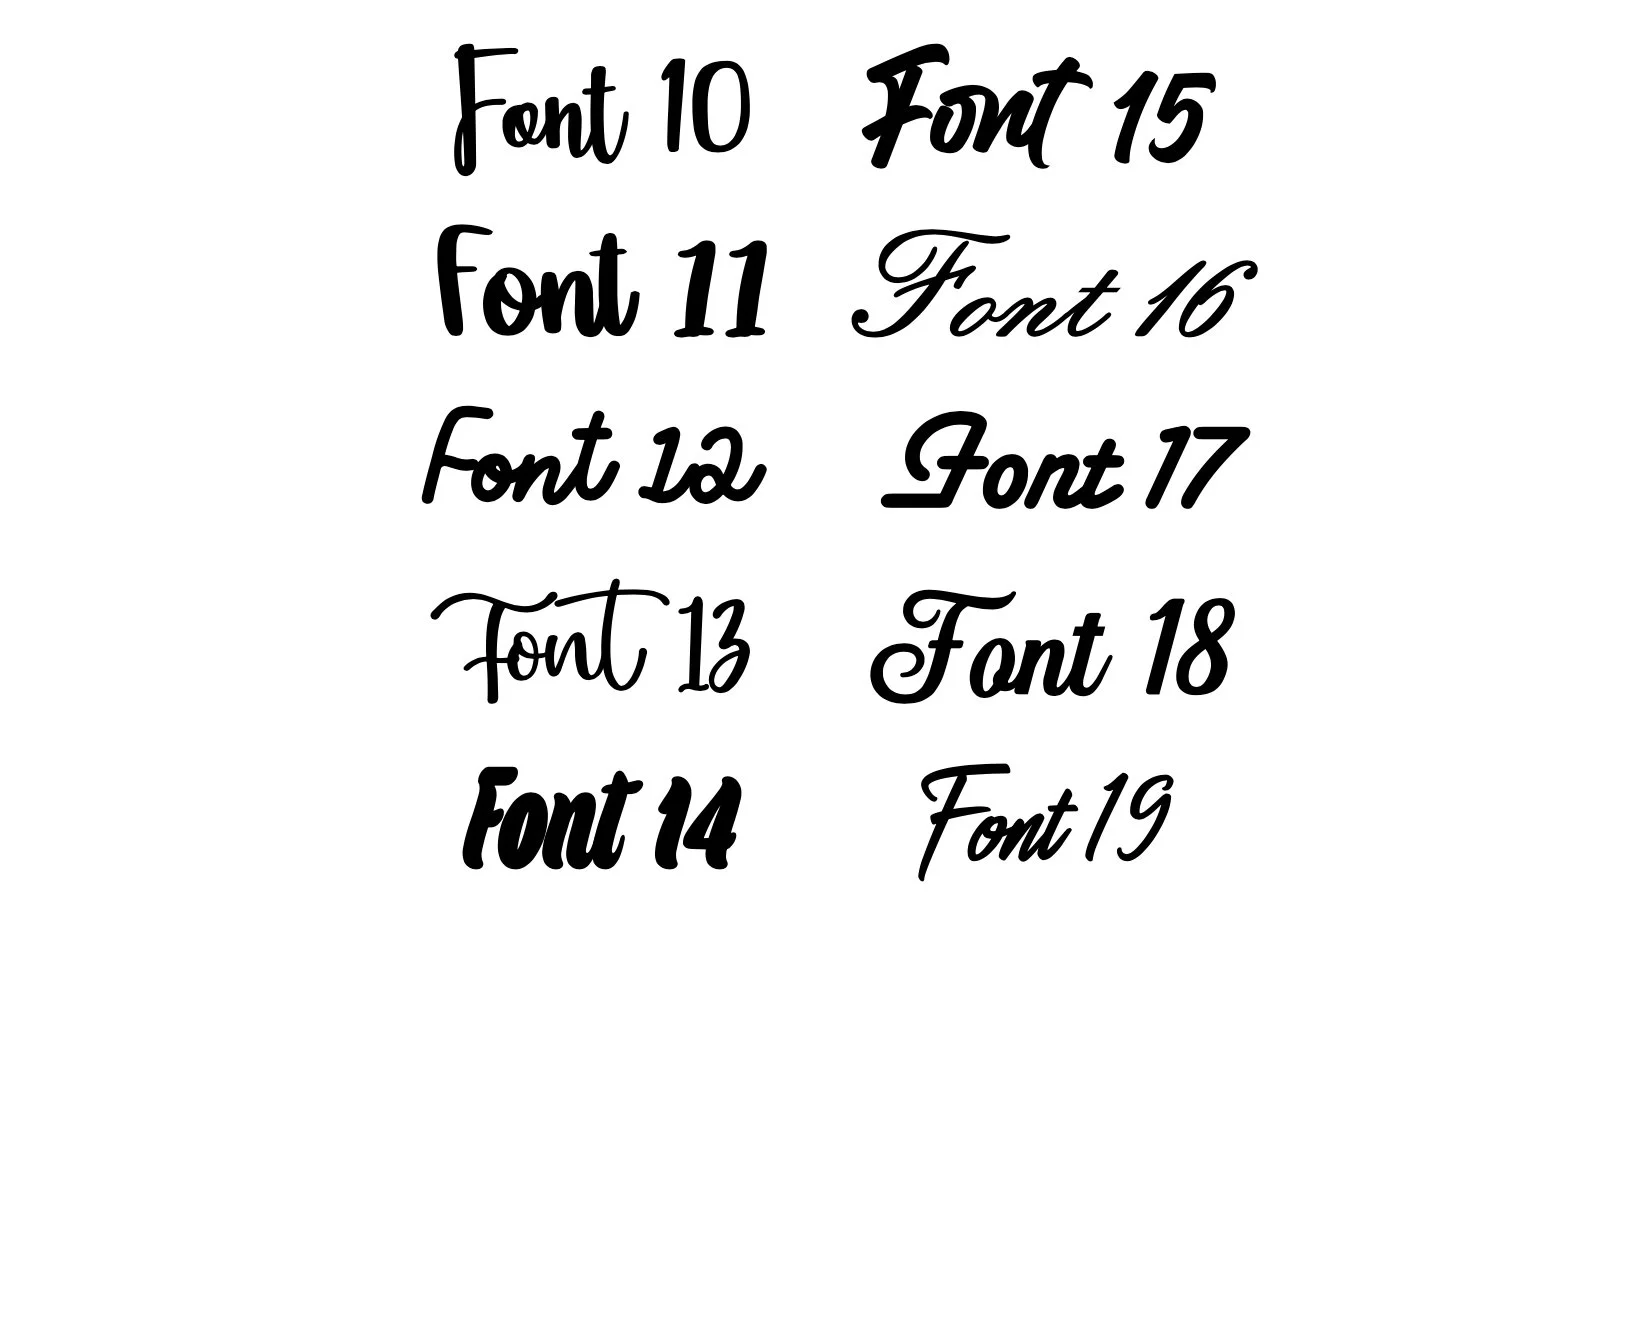 Font 10
Font 15
Font 11
Font 16
Font 12
Font 17
Font 13
Font 18
Font 14
Font 19